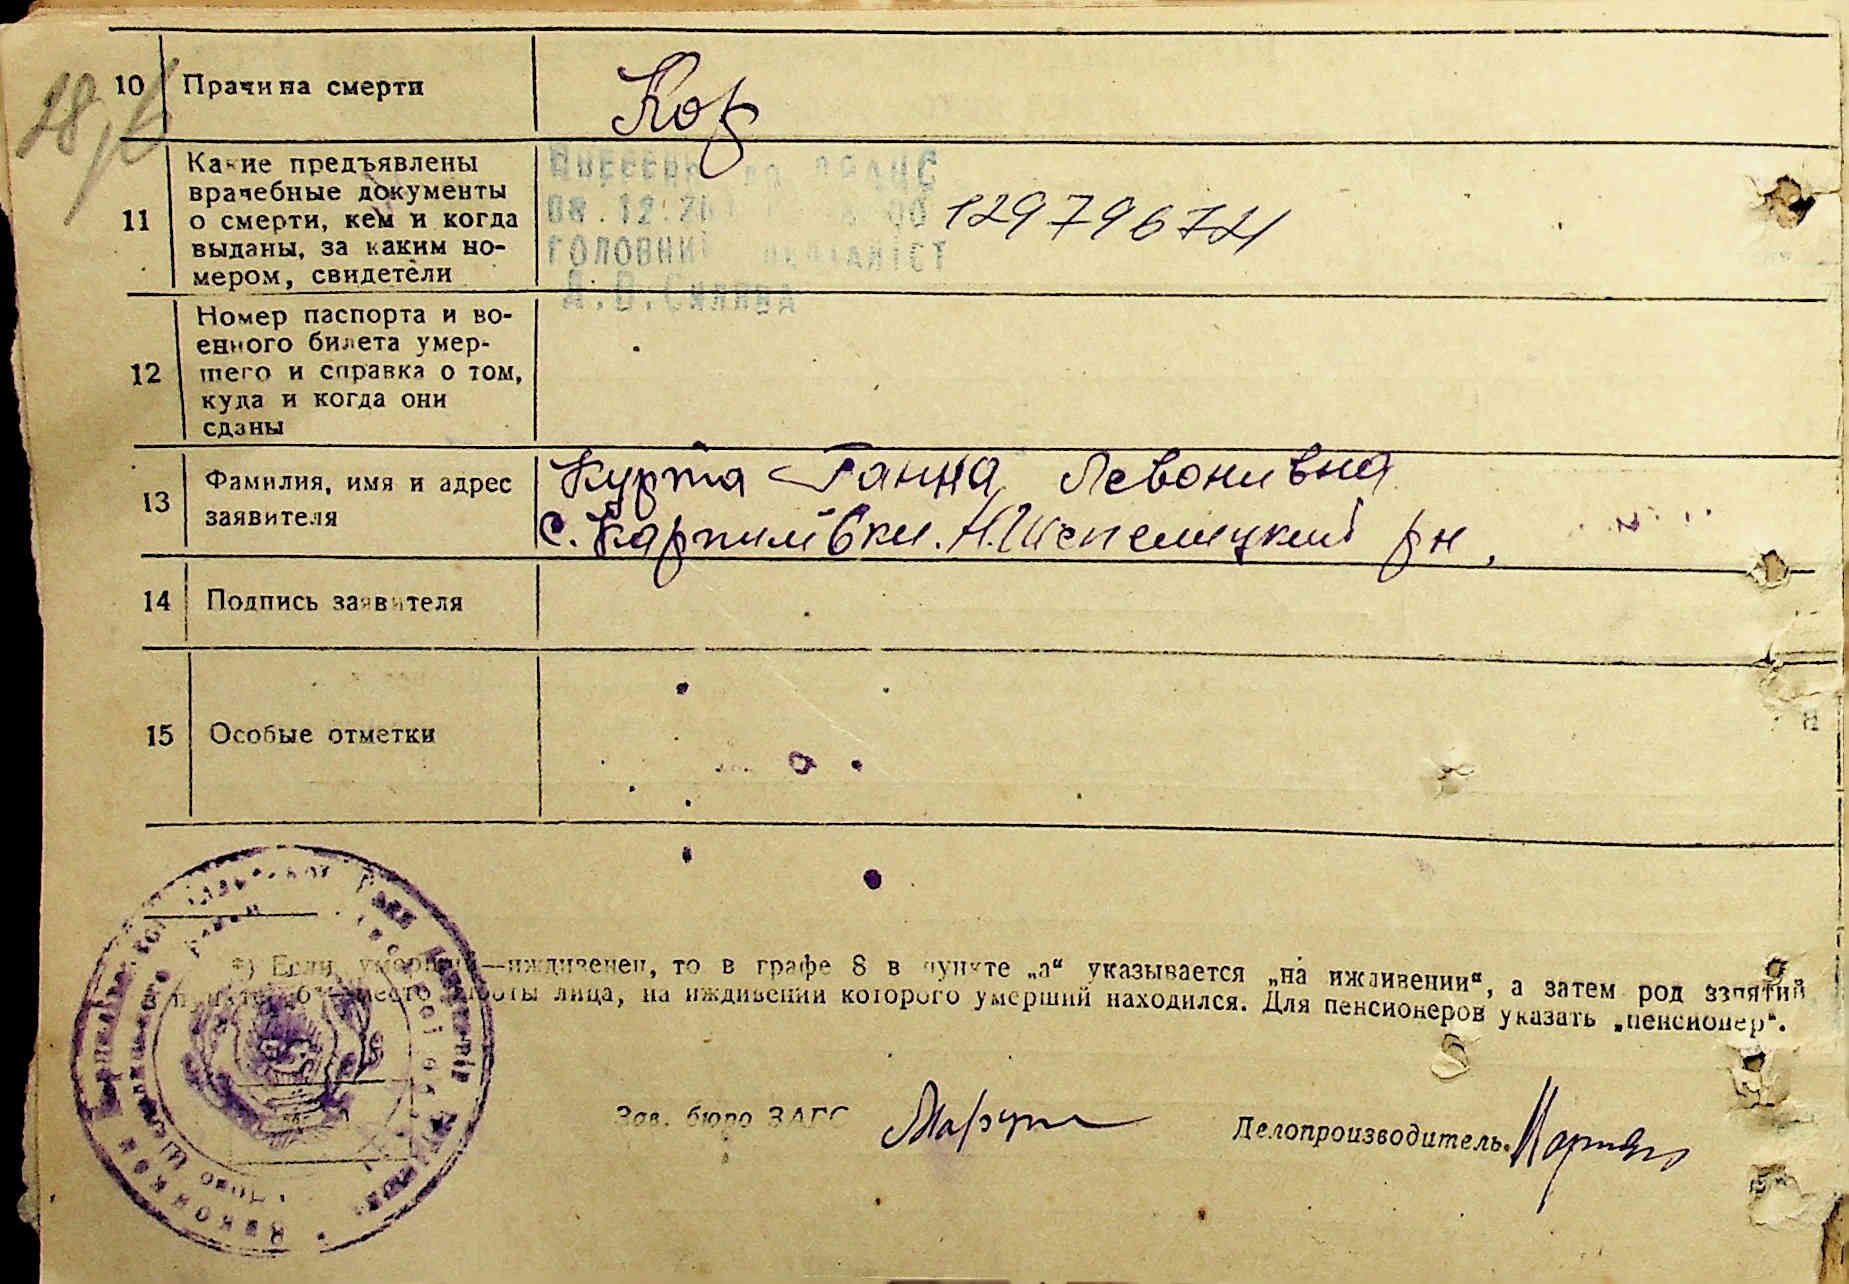 10 Причина смерти Кор
11 Какие предъявлены
врачебные документы
о смерти, кем и когда
выданы, за каким но-
мером, свидетели
08.12.20 00
129796721
ГОЛОВНИЙ СПЕЦІАЛІСТ
12 Номер паспорта и во-
енного билета умер-
шего и справка о том,
куда и когда они
сданы
13 Фамилия, имя и адрес
заявителя
Курта Ганна Левонивна
с. Карпилівки. Н. Шепелицкий рн.
14 Подпись заявителя
15 Особые отметки
*) Если умерший—иждивенец, то в графе 8 в пункте „а“ указывается „на иждивении“, а затем род занятий
место работы лица, на иждивении которого умерший находился. Для пенсионеров указать „пенсионер“.
Зав. бюро ЗАГС Делопроизводитель